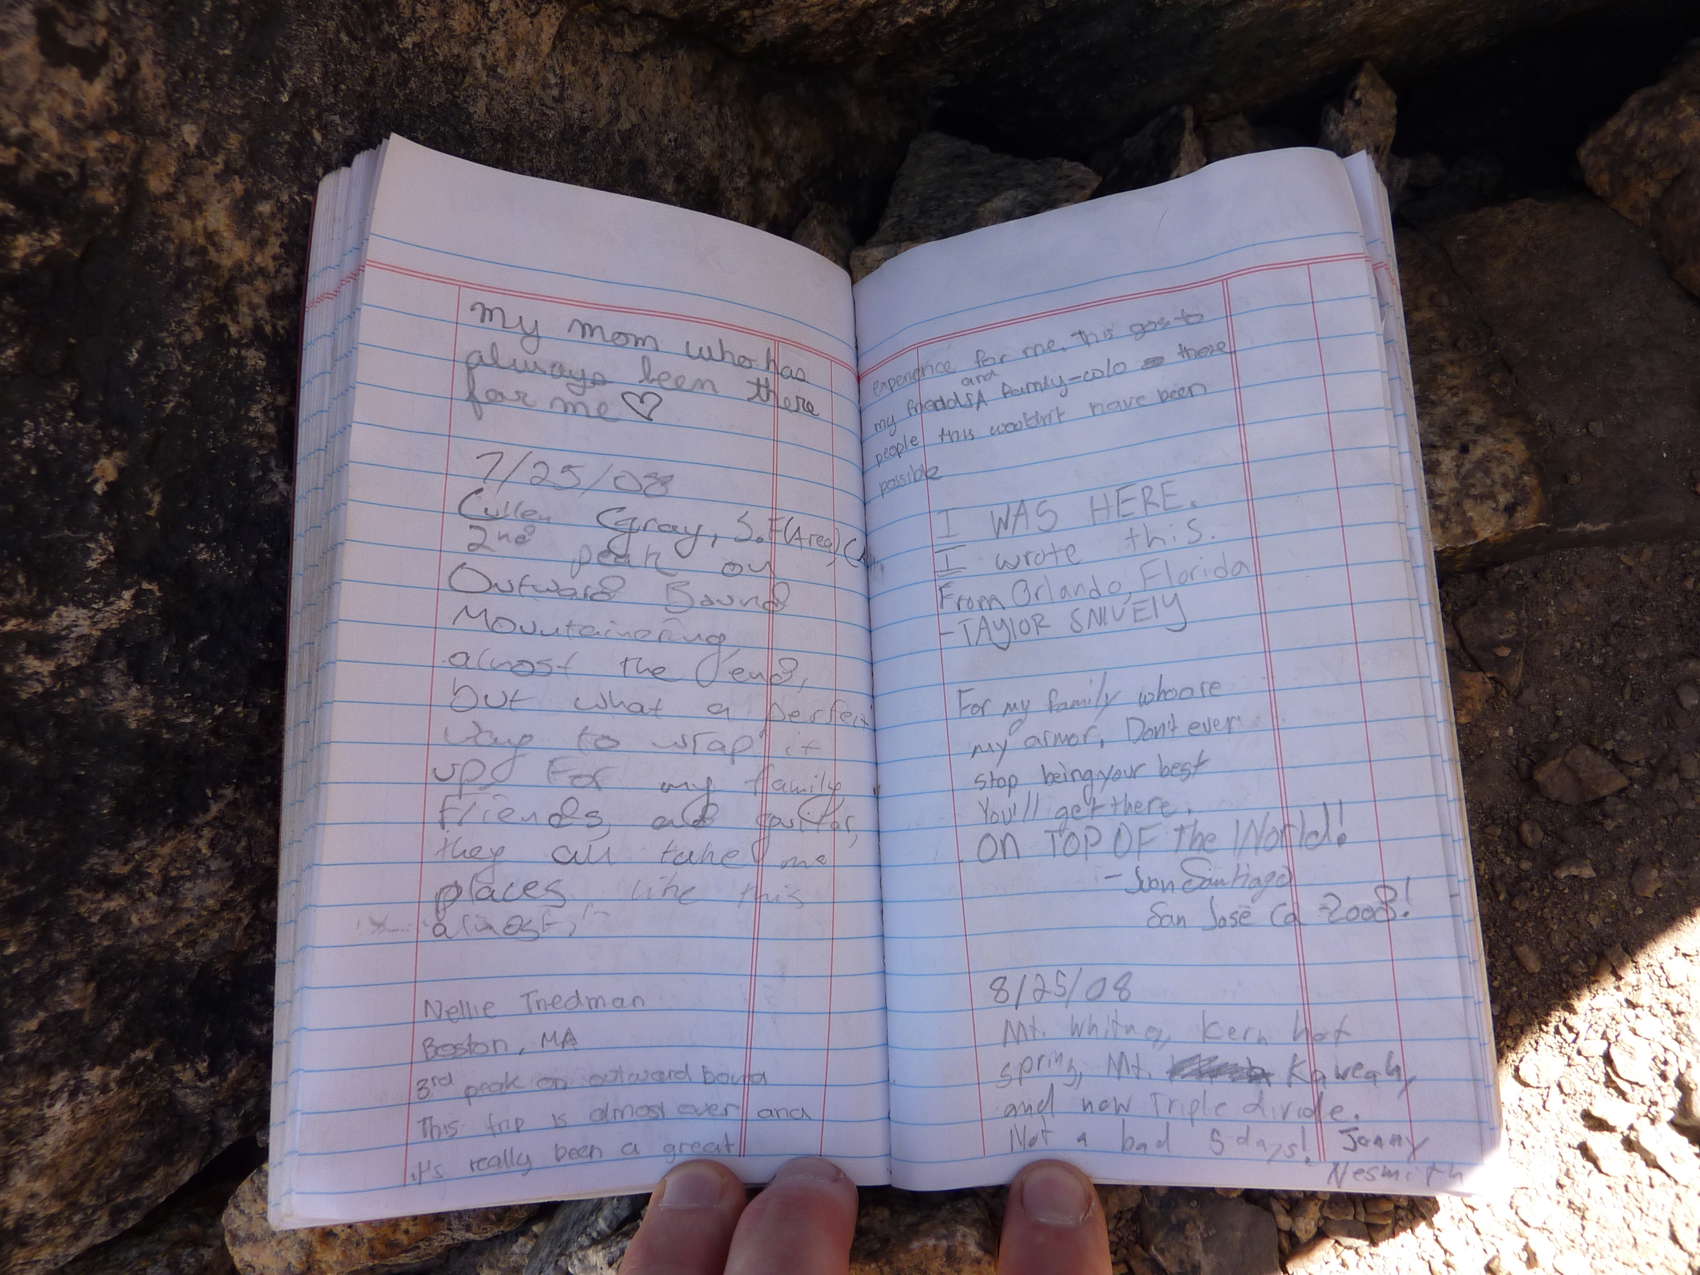 my mom who has
always been there
for me
7/25/08
Cullen Gray, S.F(Area)
2nd peak on
Outward Bound
Mountaineering,
almost the end,
but what a perfect
way to wrap it
up For my family
Friends, and guitar,
they all take me
places like this
Nellie Friedman
Boston, MA
3rd peak on outward bound
This trip is almost over and
it's really been a great
experience for me. this goes to
my friends and family-w/o these
people this wouldn't have been
possible
I WAS HERE.
I wrote this.
From Orlando, Florida
-TAYLOR SNIVELY
For my family who are
my armor, Don't ever
stop being your best
You'll get there.
ON TOP OF The World!
- Juan Santiago
San Jose Ca 2008!
8/25/08
Mt. Whitney, Kern hot
spring, Mt. Kaweah,
and now Triple divide.
Not a bad 5 days! Jonny
Nesmith